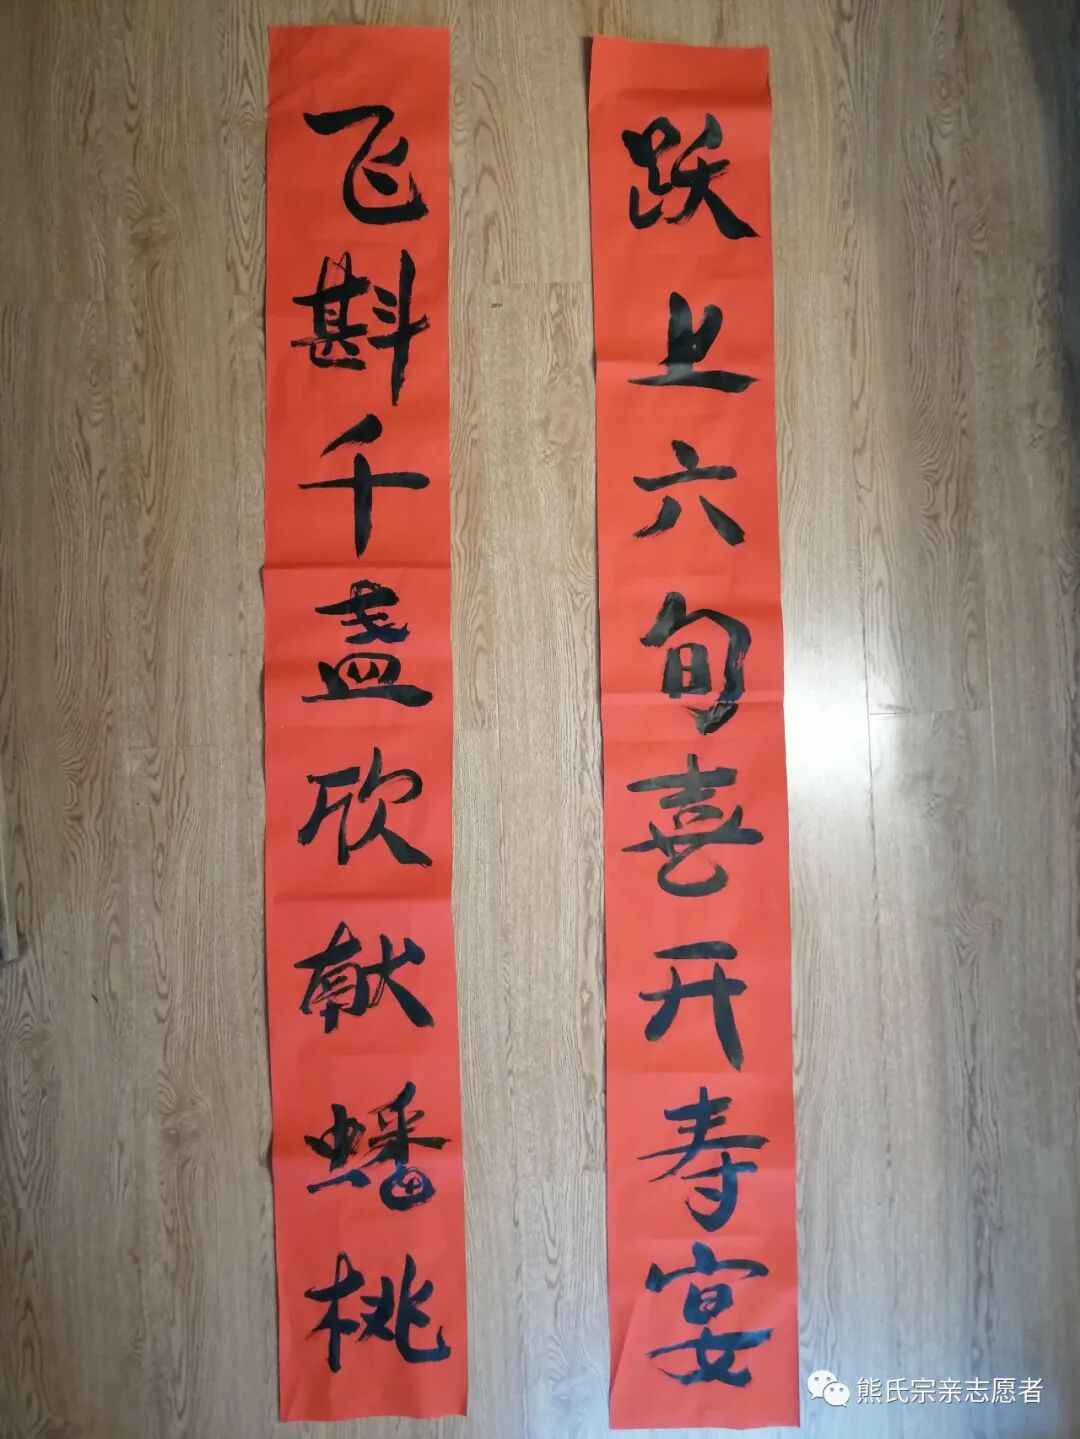 跃上六旬喜开寿宴
飞斟千盏欣献蟠桃
熊氏宗亲志愿者